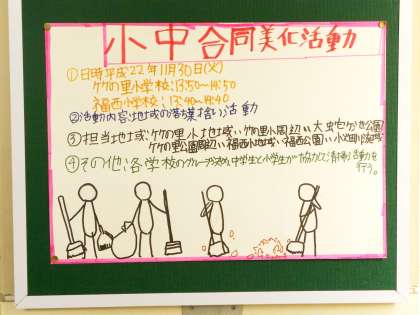 小中合同美化活動
①日時:平成22年11月30日(火)
竹の里小学校:13:50〜14:50
福西小学校:13:40〜14:40
②活動内容:地域の落葉拾い活動
③担当地域:竹の里小地域い竹の里小周辺い大蛇ヶ池公園
竹の里公園周辺い福西小地域い福西公園い小畑川流域
④その他:各学校のグループに分め、中学生と小学生が協力して清掃活動を
行う。